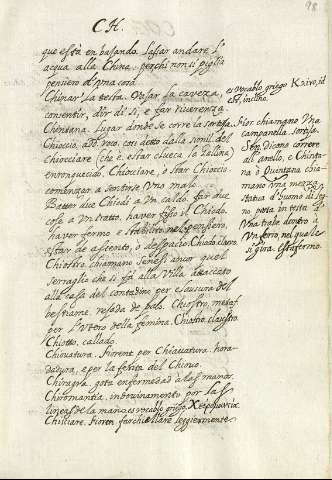 CH.
98
que està en baxando. Lassar andare l'
acqua alla China, perchi non si piglia
pensiero d'una cosa.
Chinar la testa. Baxar la caveza,
consentir, dir di si, e far riverenza.
Chintana. Lugar donde se corre la sortija.
Chioccio, add. roco. così detto dalla simil. del
chiocciare (che è estar clueca la Gallina)
enronquecido. Chiocciare, o star Chioccio
començar a sentirse Una malo.
Batter due Chiodi a Un caldo. far due
cose a Un tratto, haver fisso il Chiodo.
haver fermo e stabilito nel pensiero,
Estar de asiento, o despacio. Chiodo, clavo.
Chiostro, chiamano Senesi ancor quel
serraglio che si fà alla Villa attaccato
alla casa del contadino per clausura del
bestiame.
Chiostro, metaf.
per l'Utero della femina. Chiostra, claustro
Chiotto, callado.
Chiovatura. Fiorent. per Chiavatura. hora-
dadura, e per la ferita del Chiovo.
Chiragra, gota enfermedad a las manos.
Chiromantia, indovinamento per las
lineas de la mano. es vocablo griego. Χειρομαντία
Chisciare. Fioren.
leggiermente.
es vocablo griego Κλίνω, id
est, inclino.
Fior. chiamano Una
campanella. Sortija.
Sen. Dicono correre
all'anello, e Chinta-
na ò Quintana chia-
mano Una mezza
statua d'huomo di le-
gno posta in testa di
Una trave dentro à
Un ferro, nel quale
si gira. Estafermo.